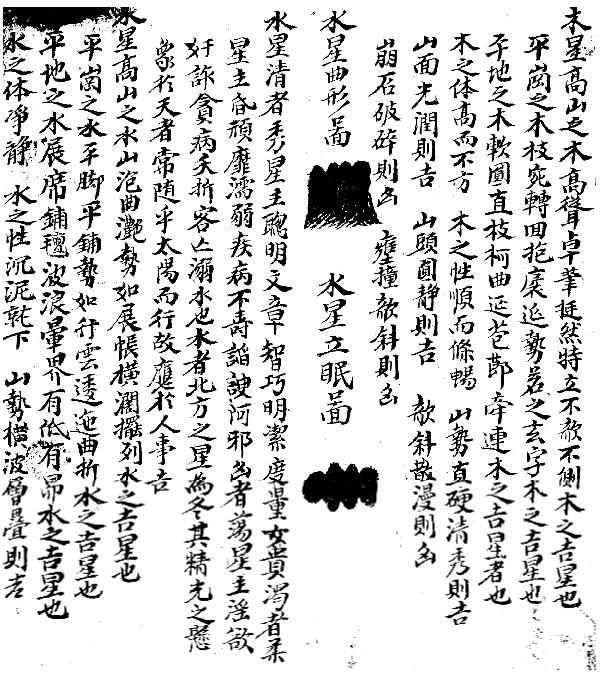 木星高山之木高聳卓筆挺然特立不欹不側木之吉星也
平崗之木枝宛轉回抱麋迤勢若之玄字木之吉星也
平地之木軟圓直枝柯曲延苞節牽連木之吉星者也
木之体高而不方　木之性順而條暢　山勢直硬清秀則吉
山面光潤則吉　山頭圓静則吉　欹斜散漫則凶
崩石破碎則凶　撞欹斜則凶
水星曲形昌　水星立眠昌
水星清者秀星主聰明文章智巧明潔度量女貴濁者柔
星主昏頑靡濡弱疾病不壽諂諛阿邪凶者蕩星主淫欲
奸詐貪病夭折客亡溺水也水者北方之星為冬其精光之懸
象於天者常随乎太陽而行故應於人事吉
水星高山之水山泡曲灔勢如展帳橫濶擺列水之吉星也
平崗之水平脚平鋪勢如行雲逶迤曲折水之吉星也
平地之水展席鋪氊波浪暈界有低有昂水之吉星也
水之体凈静　水之性沉泥就下　山勢橫波層疊則吉